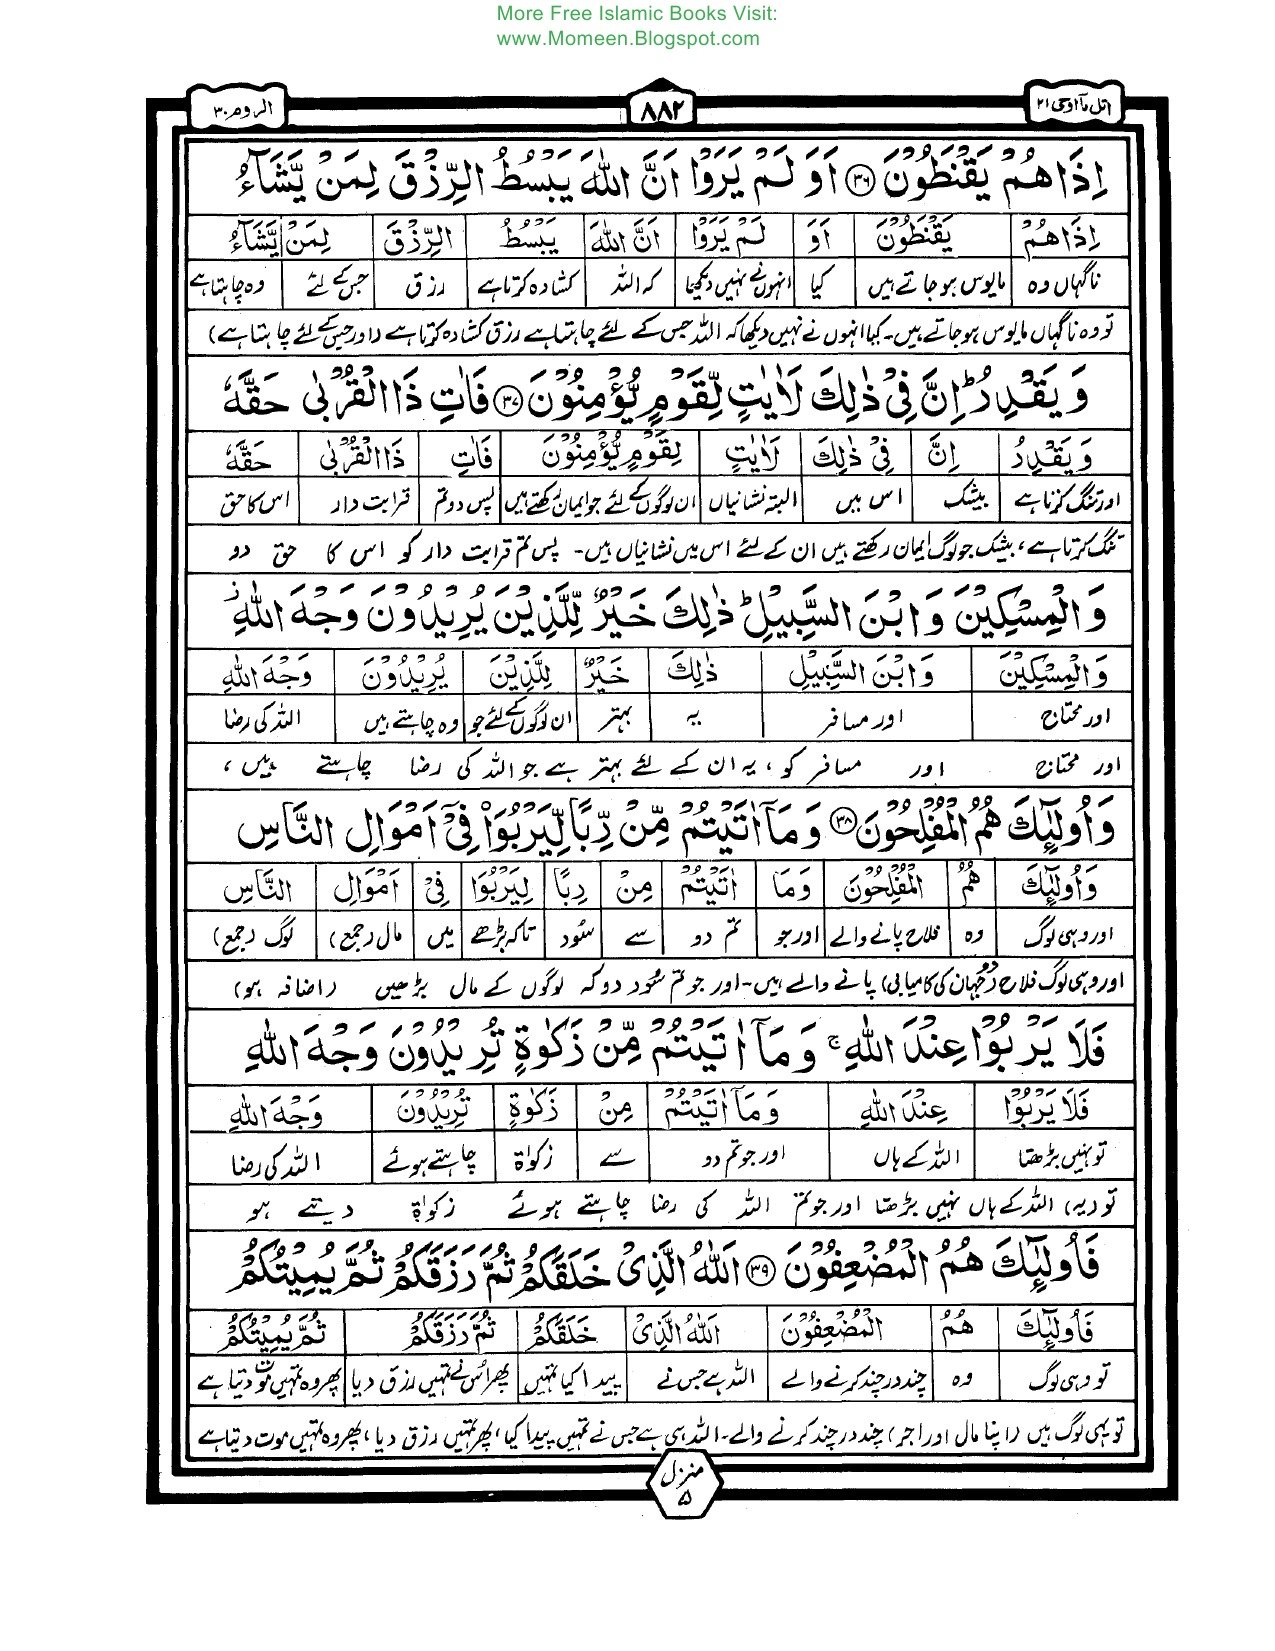 More Free Islamic Books Visit:
www.Momeen.Blogspot.com
اتل مآاوحی ۲۱ ۸۸۲ الروم ۳۰
اِذَا هُمْ يَقْنَطُوْنَ ۳۶ اَوَ لَمْ يَرَوْا اَنَّ اللّٰهَ يَبْسُطُ الرِّزْقَ لِمَنْ يَّشَآءُ
اِذَا هُمْ يَقْنَطُوْنَ اَوَ لَمْ يَرَوْا اَنَّ اللّٰهَ يَبْسُطُ الرِّزْقَ لِمَنْ يَّشَآءُ
ناگہاں وہ مایوس ہو جاتے ہیں کیا انہوں نے نہیں دیکھا کہ اللہ کشادہ کرتا ہے رزق جس کے لئے وہ چاہتا ہے
تو وہ ناگہاں مایوس ہو جاتے ہیں۔ کیا انہوں نے نہیں دیکھا کہ اللہ جس کے لئے چاہتا ہے رزق کشادہ کرتا ہے (اور جس کے لئے چاہتا ہے)
وَ يَقْدِرُ ؕ اِنَّ فِيْ ذٰلِكَ لَاٰيٰتٍ لِّقَوْمٍ يُّؤْمِنُوْنَ ۳۷ فَاٰتِ ذَا الْقُرْبٰى حَقَّهٗ
وَ يَقْدِرُ اِنَّ فِيْ ذٰلِكَ لَاٰيٰتٍ لِقَوْمٍ يُّؤْمِنُوْنَ فَاٰتِ ذَا الْقُرْبٰى حَقَّهٗ
اور تنگ کرتا ہے بیشک اس میں البتہ نشانیاں ان لوگوں کے لئے جو ایمان رکھتے ہیں پس دو تم قرابت دار اس کا حق
تنگ کرتا ہے، بیشک جو لوگ ایمان رکھتے ہیں ان کے لئے اس میں نشانیاں ہیں۔ پس تم قرابت دار کو اس کا حق دو
وَ الْمِسْكِيْنَ وَ ابْنَ السَّبِيْلِ ؕ ذٰلِكَ خَيْرٌ لِّلَّذِيْنَ يُرِيْدُوْنَ وَجْهَ اللّٰهِ ز
وَ الْمِسْكِيْنَ وَ ابْنَ السَّبِيْلِ ذٰلِكَ خَيْرٌ لِلَّذِيْنَ يُرِيْدُوْنَ وَجْهَ اللّٰهِ
اور محتاج اور مسافر یہ بہتر ان لوگوں کے لئے جو وہ چاہتے ہیں اللہ کی رضا
اور محتاج اور مسافر کو، یہ ان کے لئے بہتر ہے جو اللہ کی رضا چاہتے ہیں،
وَ اُولٰٓئِكَ هُمُ الْمُفْلِحُوْنَ ۳۸ وَ مَآ اٰتَيْتُمْ مِّنْ رِّبًا لِّيَرْبُوَا۟ فِيْٓ اَمْوَالِ النَّاسِ
وَ اُولٰٓئِكَ هُمُ الْمُفْلِحُوْنَ وَمَا اٰتَيْتُمْ مِنْ رِبًا لِيَرْبُوَا فِيْ اَمْوَالِ النَّاسِ
اور وہی لوگ وہ فلاح پانے والے اور جو تم دو سے سُود تاکہ بڑھے میں مال (جمع) لوگ (جمع)
اور وہی لوگ فلاح (دو جہان کی کامیابی) پانے والے ہیں۔ اور جو تم سُود دو کہ لوگوں کے مال بڑھیں (اضافہ ہو)
فَلَا يَرْبُوْا عِنْدَ اللّٰهِ ۚ وَ مَآ اٰتَيْتُمْ مِّنْ زَكٰوةٍ تُرِيْدُوْنَ وَجْهَ اللّٰهِ
فَلَا يَرْبُوْا عِنْدَ اللّٰهِ وَ مَآ اٰتَيْتُمْ مِنْ زَكٰوةٍ تُرِيْدُوْنَ وَجْهَ اللّٰهِ
تو نہیں بڑھتا اللہ کے ہاں اور جو تم دو سے زکوٰۃ چاہتے ہوئے اللہ کی رضا
تو (یہ) اللہ کے ہاں نہیں بڑھتا اور جو تم اللہ کی رضا چاہتے ہوئے زکوٰۃ دیتے ہو
فَاُولٰٓئِكَ هُمُ الْمُضْعِفُوْنَ ۳۹ اَللّٰهُ الَّذِيْ خَلَقَكُمْ ثُمَّ رَزَقَكُمْ ثُمَّ يُمِيْتُكُمْ
فَاُولٰٓئِكَ هُمُ الْمُضْعِفُوْنَ اَللّٰهُ الَّذِيْ خَلَقَكُمْ ثُمَّ رَزَقَكُمْ ثُمَّ يُمِيْتُكُمْ
تو وہی لوگ وہ چند در چند کرنے والے اللہ ہے جس نے پیدا کیا تمہیں پھر اس نے تمہیں رزق دیا پھر وہ تمہیں موت دیتا ہے
تو یہی لوگ ہیں (اپنا مال اور اجر) چند در چند کرنے والے۔ اللہ ہی ہے جس نے تمہیں پیدا کیا، پھر تمہیں رزق دیا، پھر وہ تمہیں موت دیتا ہے
منزل
۵